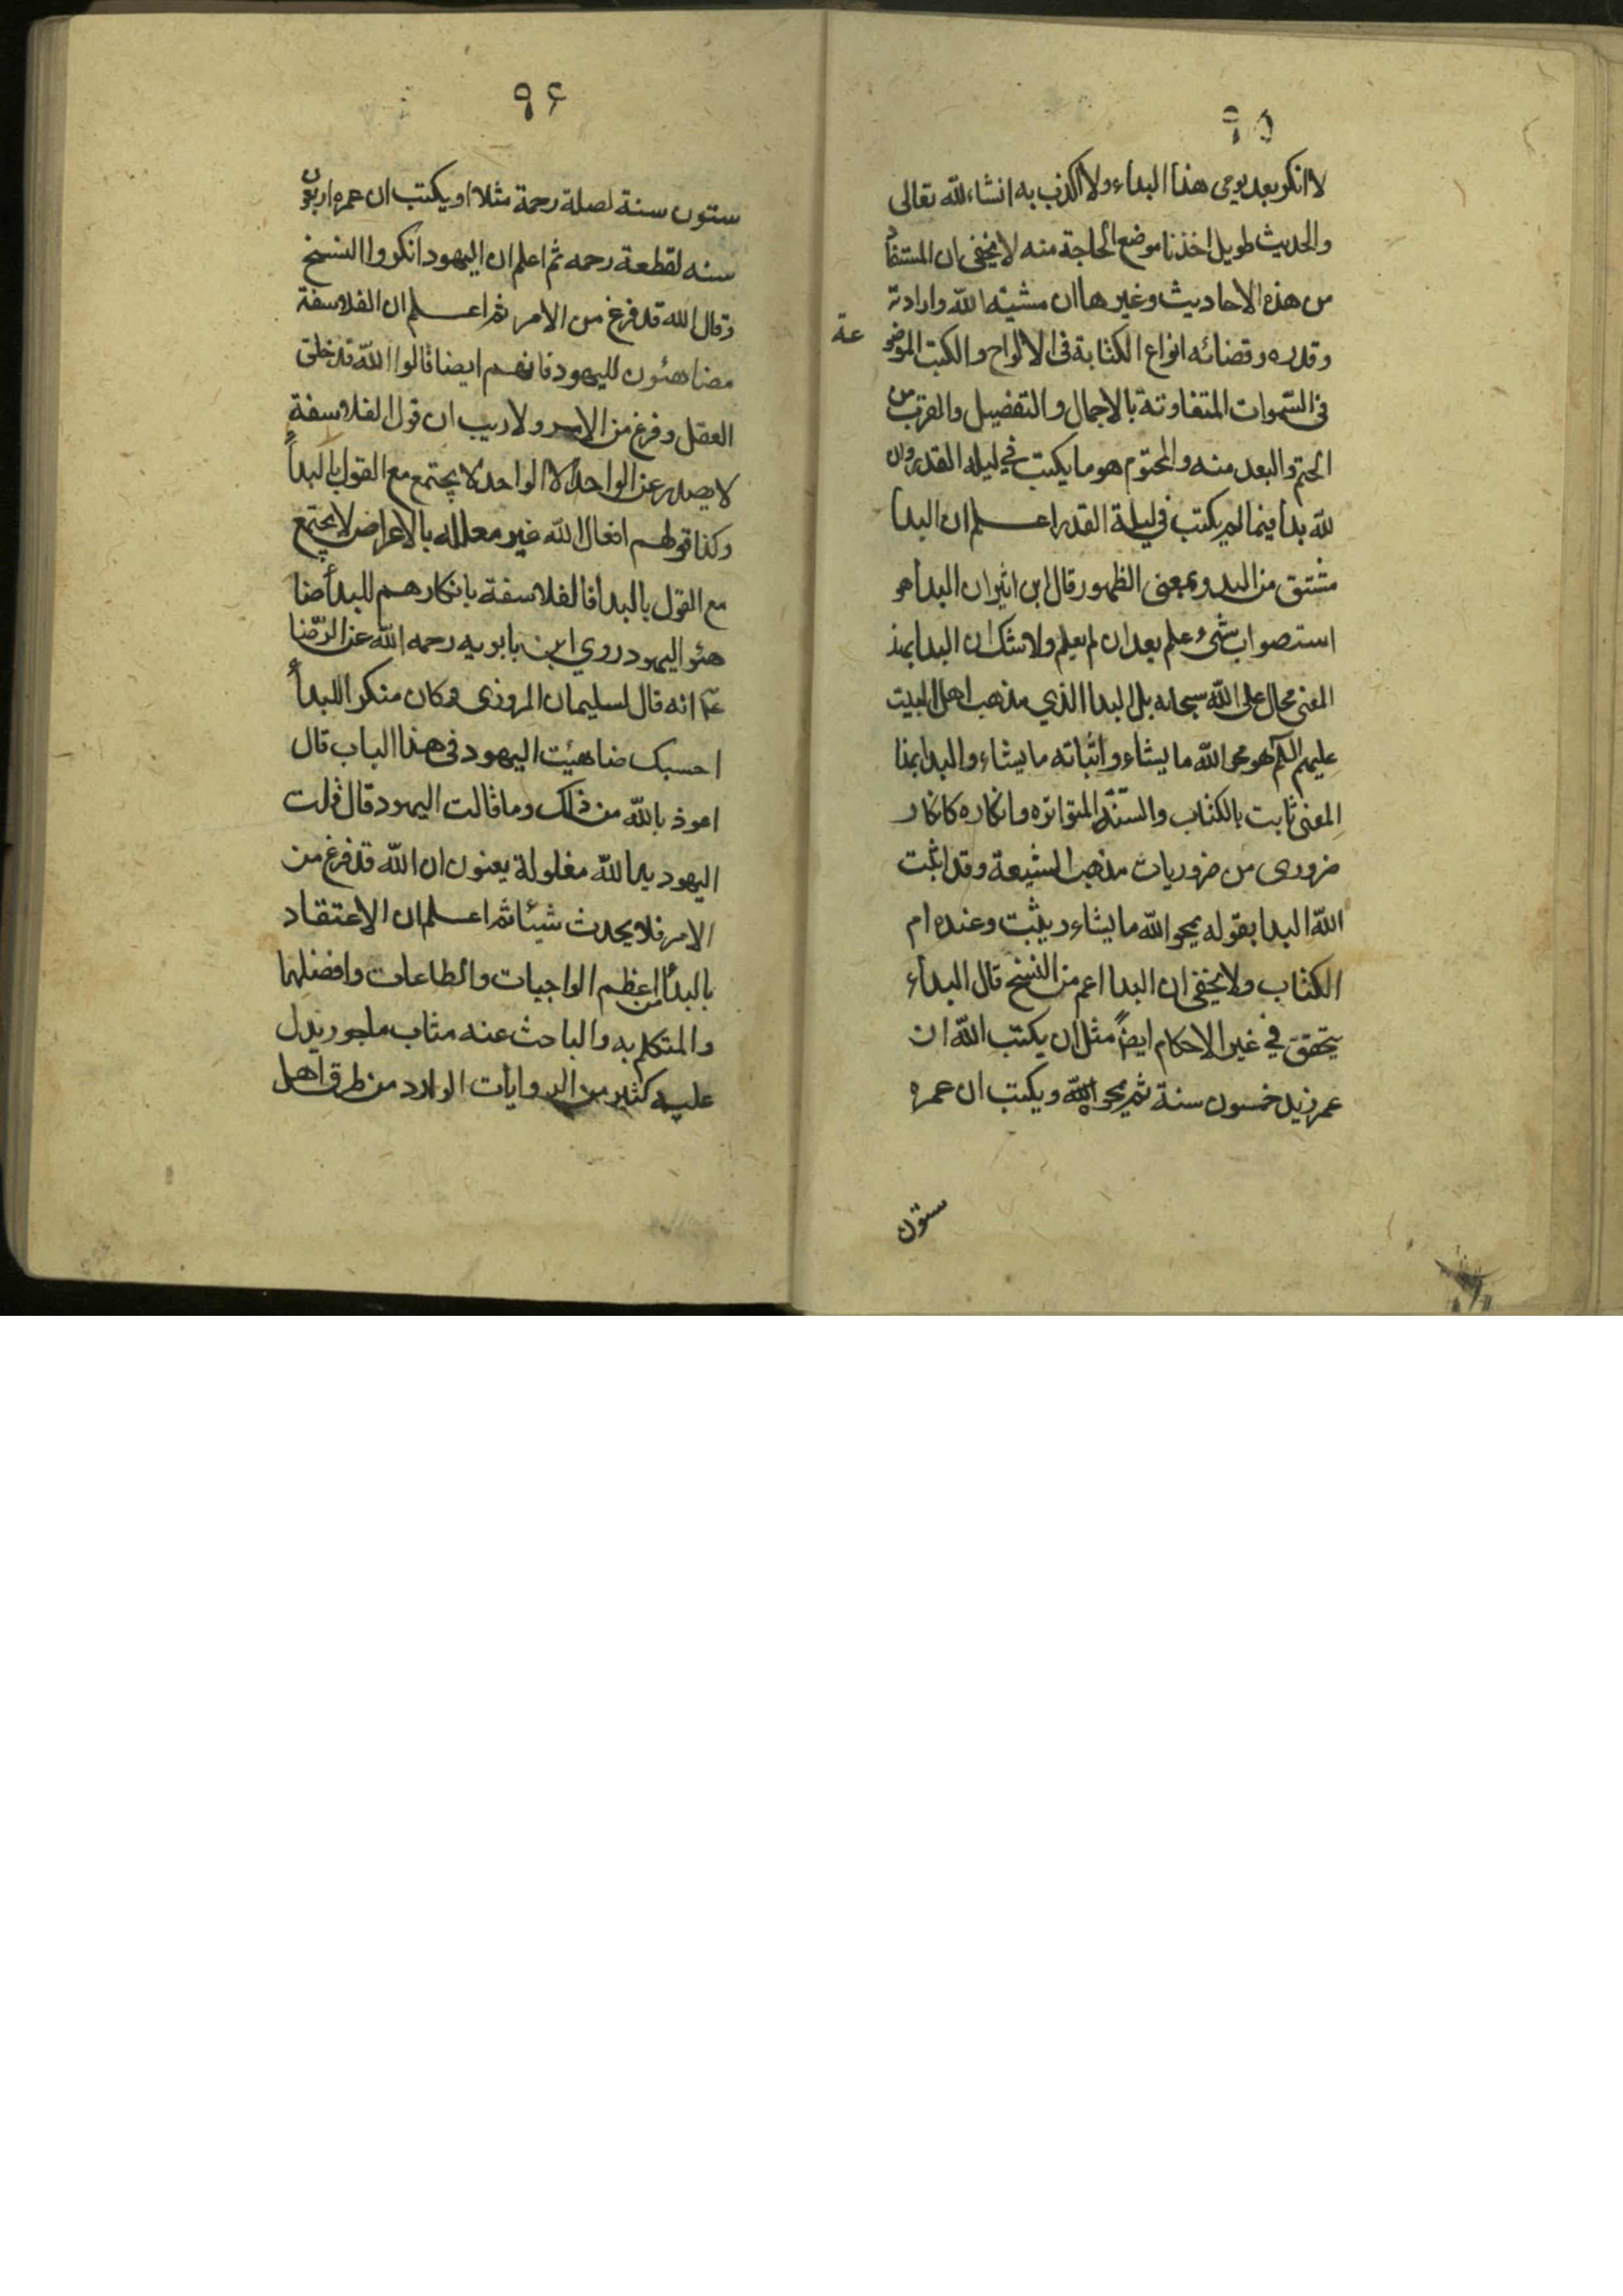 ٩٥
لا انكر بعد يومى هذا البداء ولا اكذب به انشاء لله تعالى
والحديث طويل اخذنا موضع الحاجة منه لا يخفى ان المستفاد
من هذه الاحاديث وغيرها ان مشيته الله وارادته
وقدره وقضائه انواع الكتابة فى الالواح والكتب الموضو
عة
فى السّموات المتفاوتة بالاجمال والتفضيل والقرب من
الحتم والبعد منه والمحتوم هو ما يكتب في ليله القدر وان
لله بدأ فيما لم يكتب في ليلة القدر اعلم ان البدأ
مشتق من البدو بمعنى الظهور قال ابن اثير ان البدأ هو
استصواب شئ علم بعد ان لم يعلم ولا شك ان البدا بهذ
المعنى محال على الله سبحانه بل البدا الذي مذهب اهل البيت
عليهم السّلم هو محو الله ما يشاء واثباته ما يشاء والبدا بهذا
المعنى ثابت بالكتاب والسّنّة المتواتره وانكاره كانكار
ضرورى من ضروريات مذهب الشيعة وقد اثبت
الله البدا بقوله يمحو الله ما يشاء ويثبت وعنده ام
الكتاب ولا يخفى ان البدا اعم من النسخ قال البدأء
يتحقق في غير الاحكام ايضاً مثل ان يكتب الله ان
عمر زيد خمسون سنة ثم يمحو الله ويكتب ان عمره
ستون
٩۶
ستون سنة لصلة رحمة مثلا او يكتب ان عمره اربعون
سنه لقطعة رحمه ثم اعلم ان اليهود انكروا النسخ
وقال الله قد فرغ من الامر ثم اعلم ان الفلاسفة
مضاهئون لليهود فانهم ايضا قالوا الله قد خلق
العقل وفرغ من الامر ولا ريب ان قول الفلاسفة
لا يصدر عن الواحد الا الواحد لا يجتمع مع القول بالبدأ
وكذا قولهم افعال الله غير معلله بالاعراض لا يجتمع
مع القول بالبدا فالفلاسفة بانكارهم للبدأ ضا
هئو اليهود روي ابن بابويه رحمه الله عن الرّضا
عم انه قال لسليمان المروزى وكان منكر اللبدأ
احسبك ضاهيت اليهود فى هذا الباب قال
اعوذ بالله من ذلك وما قالت اليهود قال قالت
اليهود يد الله مغلولة يعنون ان الله قد فرغ من
الامر فلا يحدث شيئا ثم اعلم ان الاعتقاد
بالبدأ من اعظم الواجبات والطاعات وافضلهما
والمتكلم به والباحث عنه مثاب ماجور يدل
عليه كثير من الروايات الوارد من طرق اهل